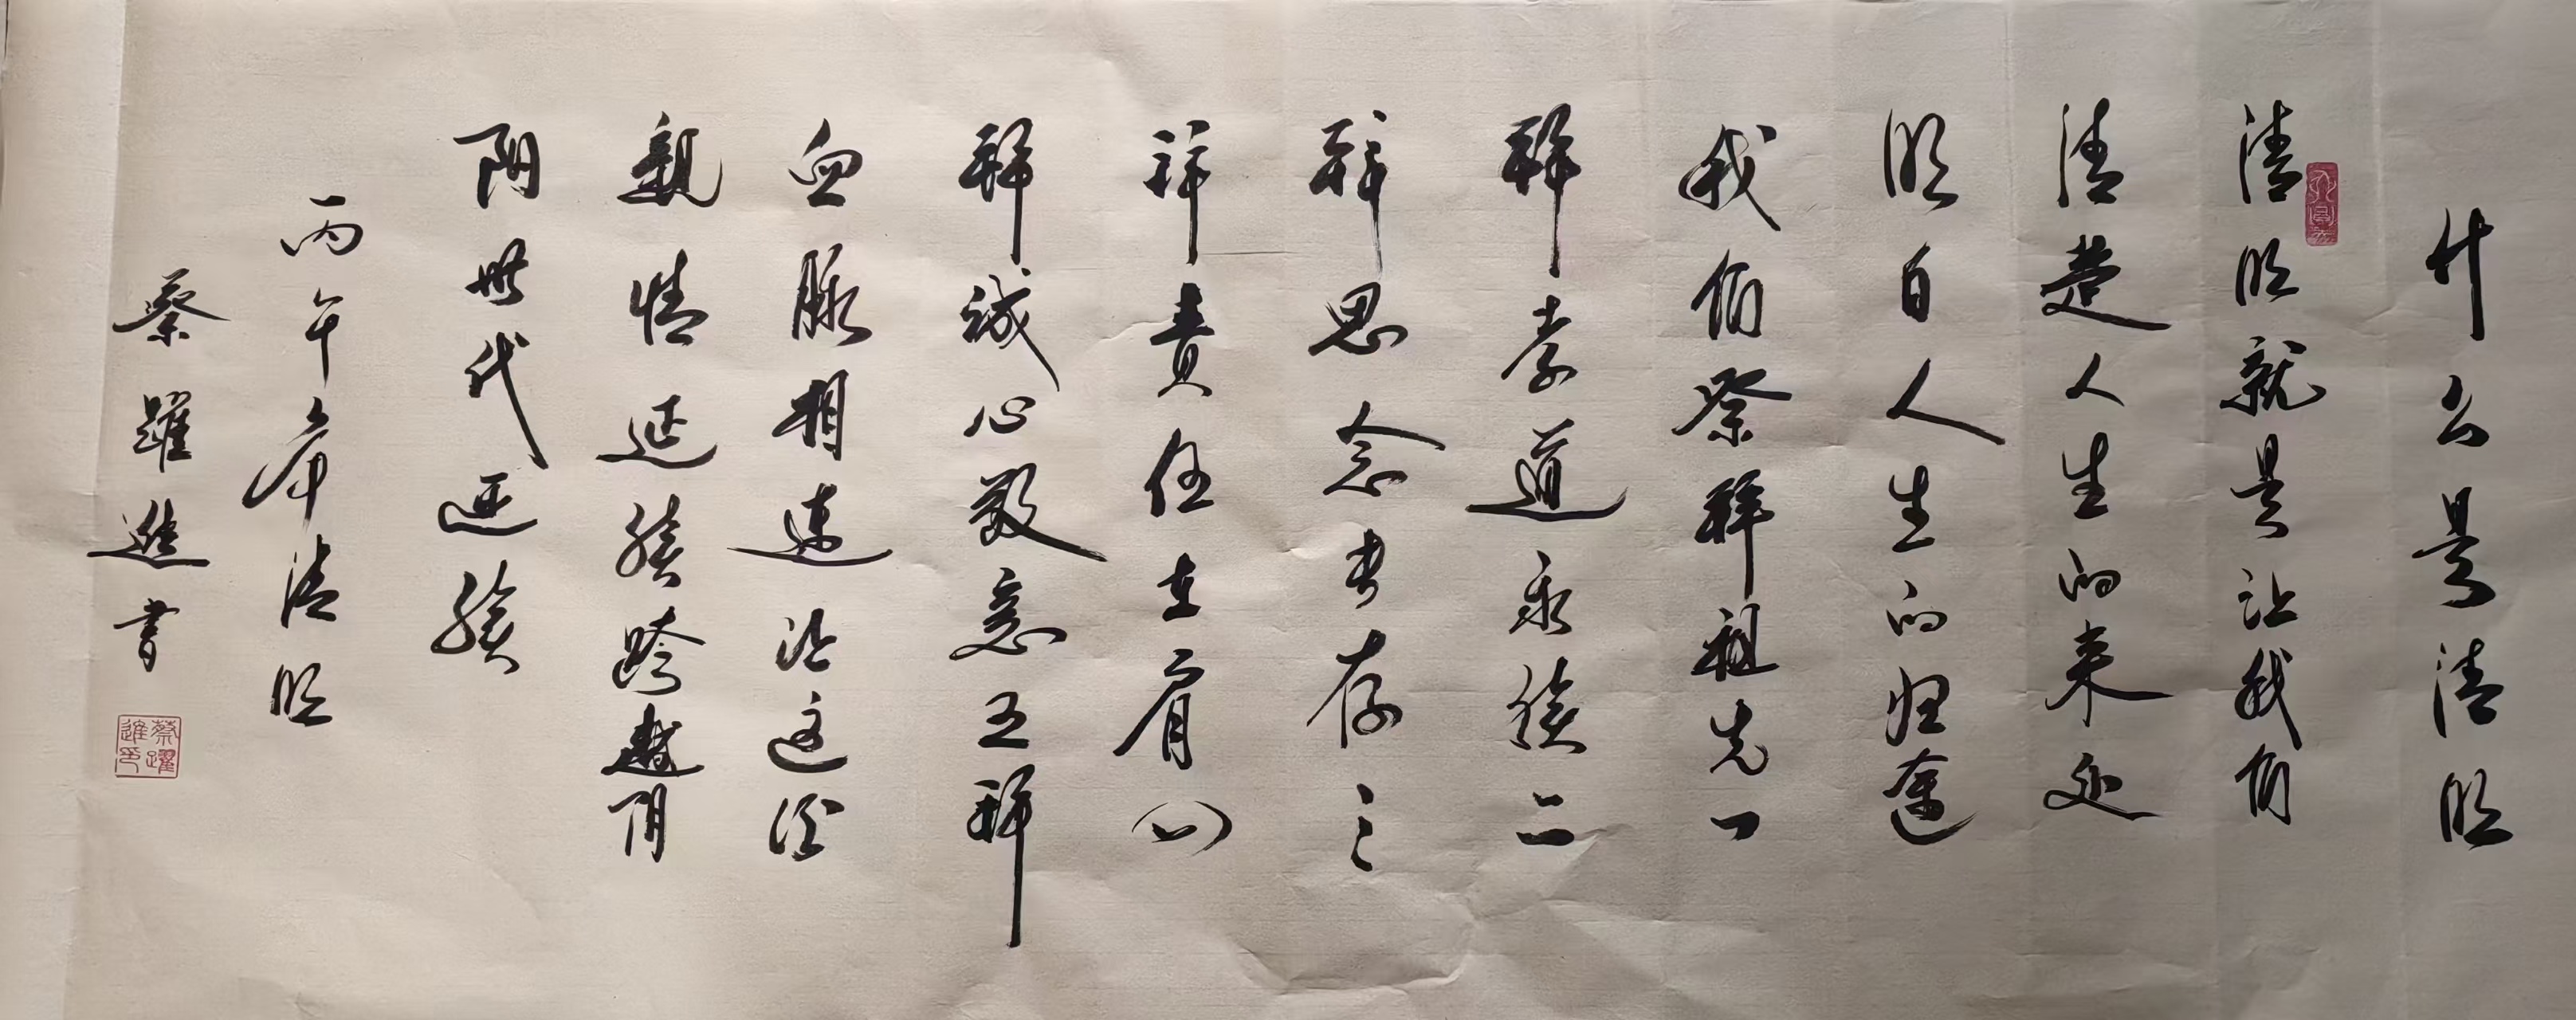 什么是清明
清明就是让我们
清楚人生的来处
明白人生的归途
我们祭拜祖先一
拜孝道永续二
拜思念长存三
拜责任在肩四
拜诚心敬意五拜
血脉相连让这份
親情延续跨越阴
阳世代延续
丙午年清明
蔡躍進書
蔡躍進印